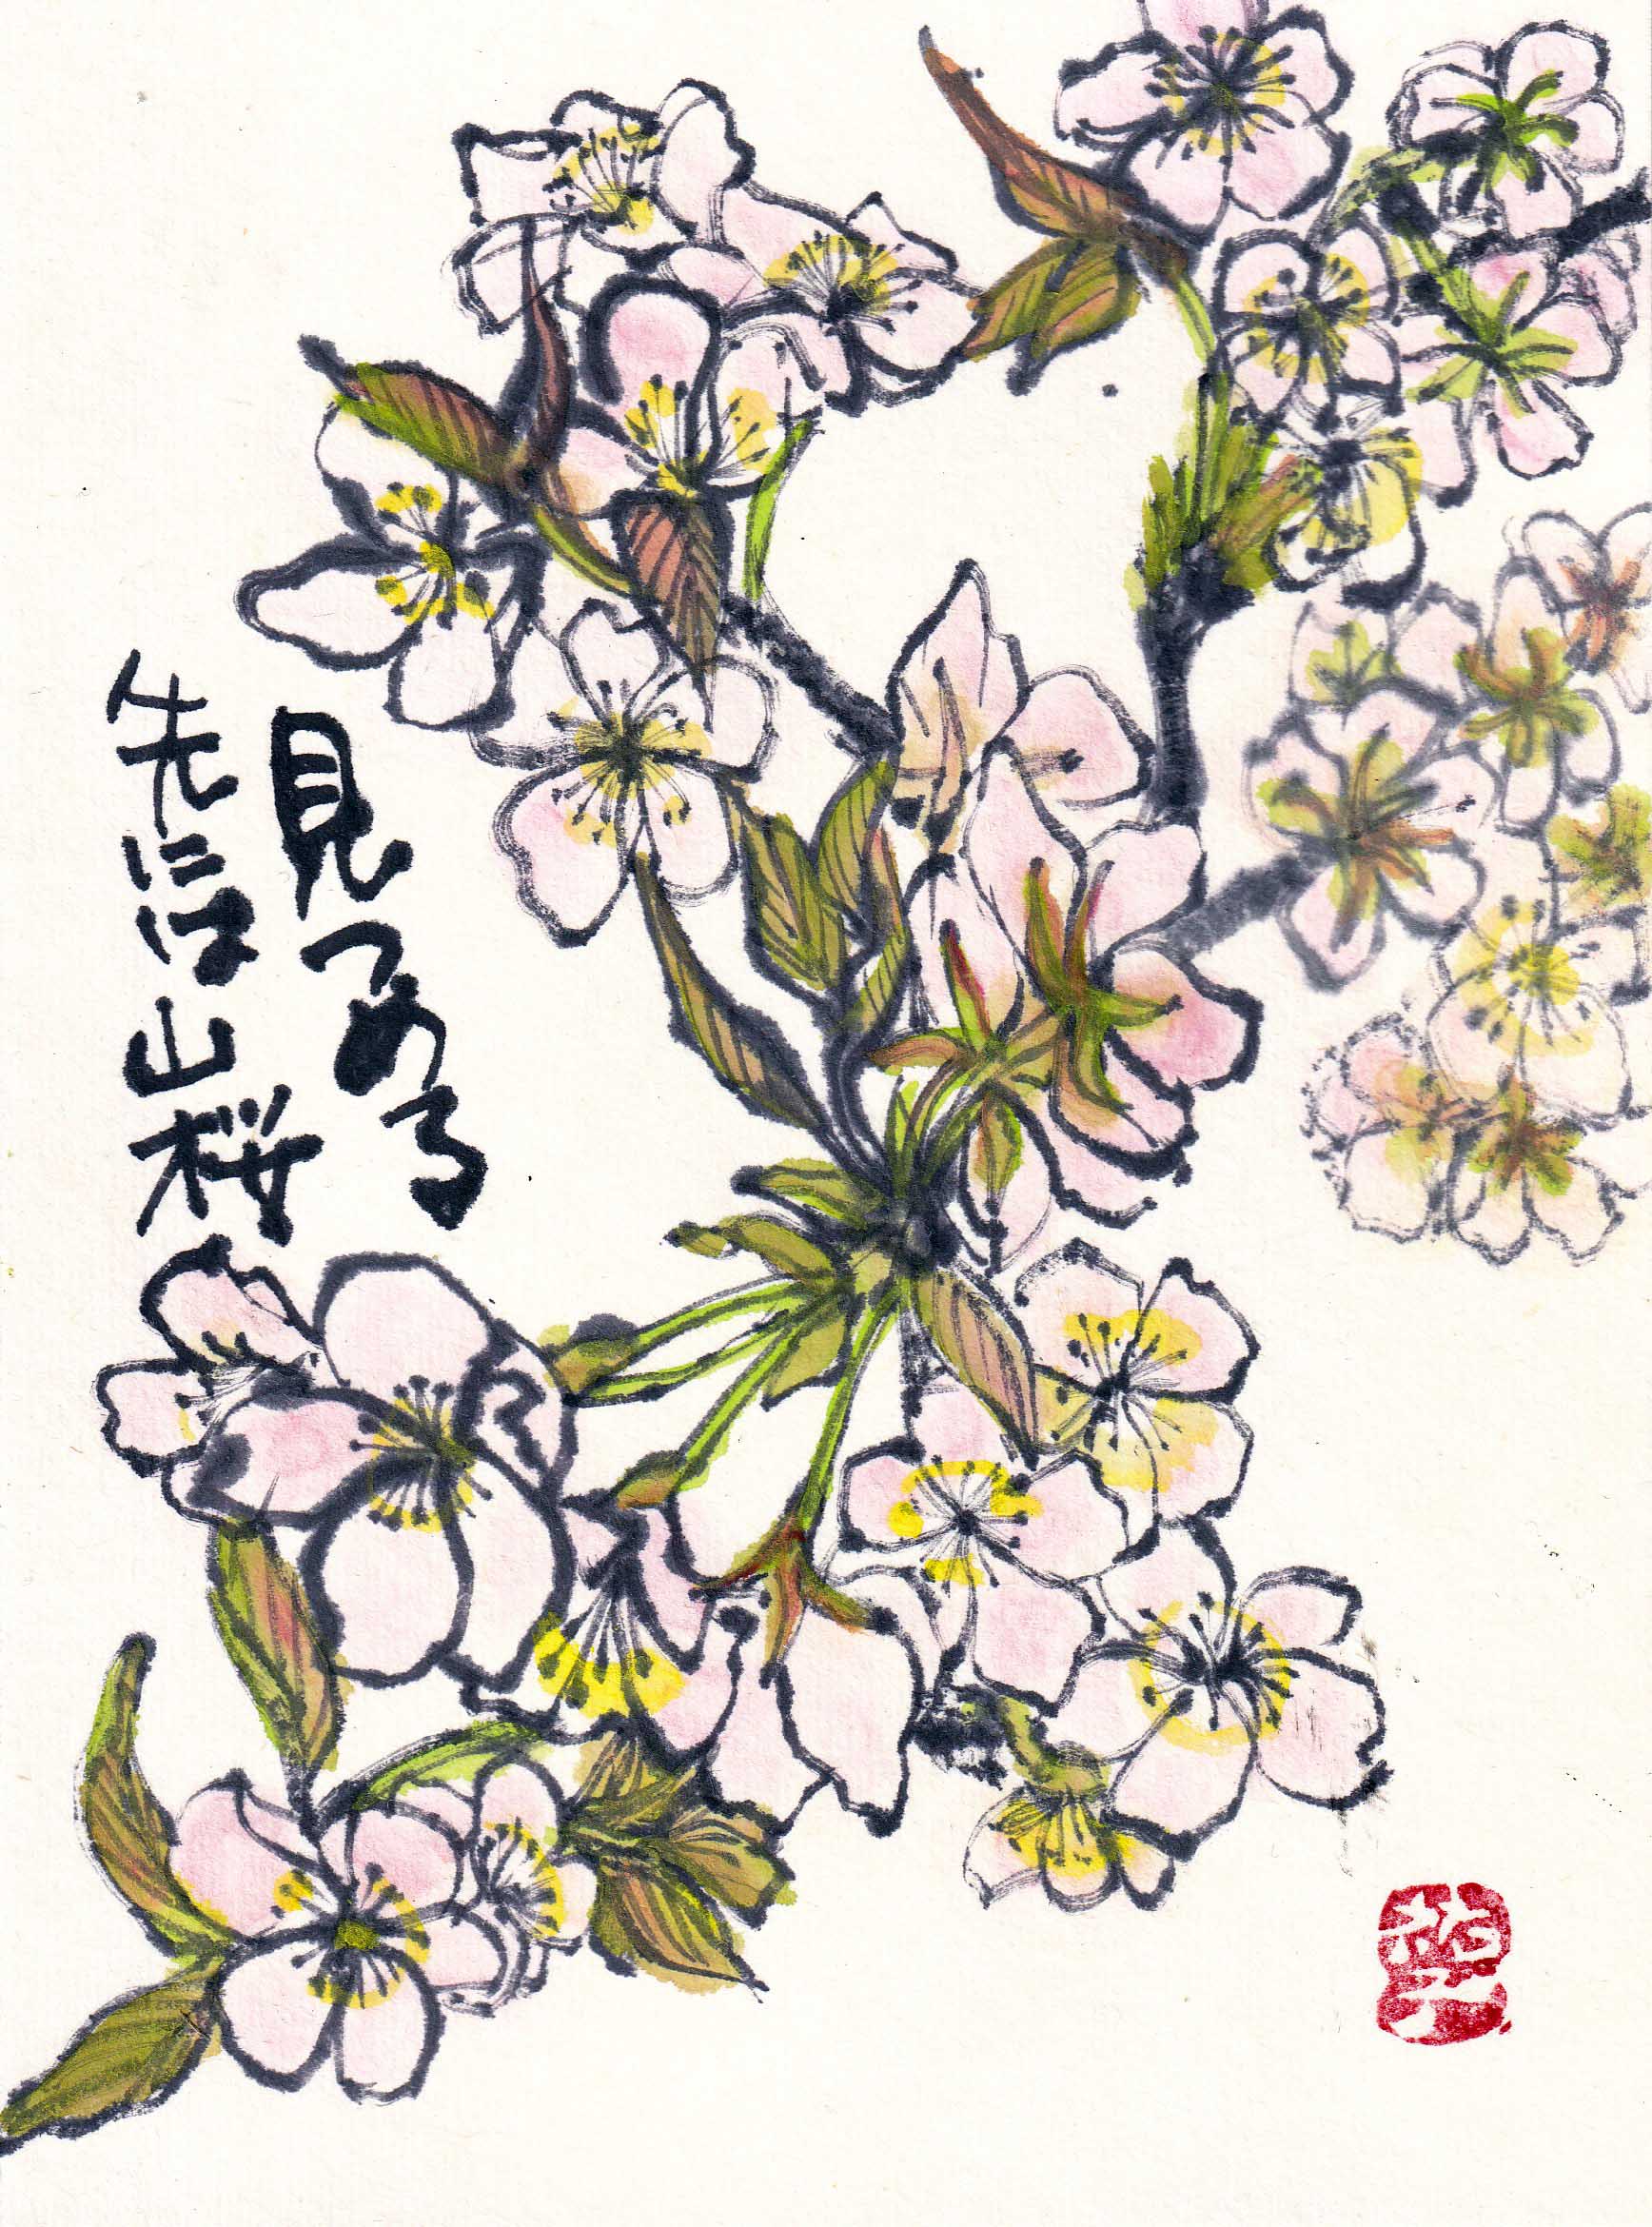 見つめる
先には山桜